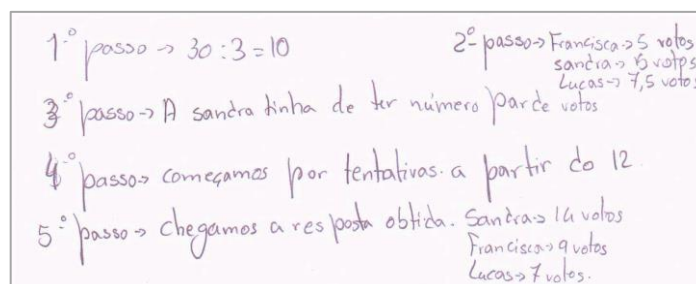 1.º passo → 30 : 3 = 10
2º passo → Francisca → 5 votos
sandra → 15 votos
Lucas → 7,5 votos
3.º passo → A sandra tinha de ter número par de votos
4.º passo → começamos por tentativas. a partir do 12
5.º passo → chegamos a resposta obtida. Sandra → 14 votos
Francisca → 9 votos
Lucas → 7 votos.